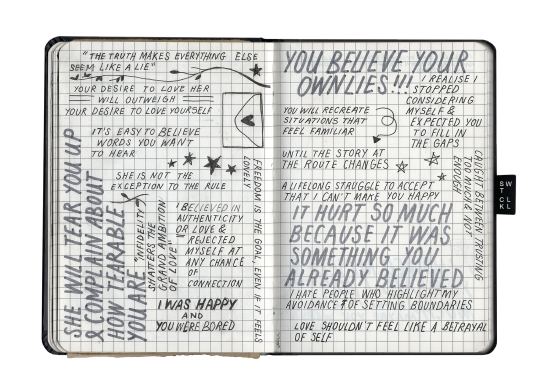 "THE TRUTH MAKES EVERYTHING ELSE
SEEM LIKE A LIE"
YOUR DESIRE TO LOVE HER
WILL OUTWEIGH
YOUR DESIRE TO LOVE YOURSELF
IT'S EASY TO BELIEVE
WORDS YOU WANT
TO HEAR
SHE IS NOT THE
EXCEPTION TO THE RULE
LONELY
FREEDOM IS THE GOAL, EVEN IF IT FEELS
SHE WILL TEAR YOU UP
& COMPLAIN ABOUT
HOW TEARABLE
YOU ARE
"INFIDELITY
SHATTERS THE
GRAND AMBITION
OF LOVE"
I BELIEVED IN
AUTHENTICITY
OR LOVE &
REJECTED
MYSELF AT
ANY CHANCE
OF
CONNECTION
I WAS HAPPY
AND
YOU WERE BORED
YOU BELIEVE YOUR
OWN LIES!!!
I REALISE I
STOPPED
CONSIDERING
MYSELF &
EXPECTED YOU
TO FILL IN
THE GAPS
YOU WILL RECREATE
SITUATIONS THAT
FEEL FAMILIAR
UNTIL THE STORY AT
THE ROUTE CHANGES
CAUGHT BETWEEN TRUSTING
TOO MUCH & NOT
ENOUGH
A LIFELONG STRUGGLE TO ACCEPT
THAT I CAN'T MAKE YOU HAPPY
IT HURT SO MUCH
BECAUSE IT WAS
SOMETHING YOU
ALREADY BELIEVED
I HATE PEOPLE WHO HIGHLIGHT MY
AVOIDANCE OF SETTING BOUNDARIES
LOVE SHOULDN'T FEEL LIKE A BETRAYAL
OF SELF
SW
TC
LKL